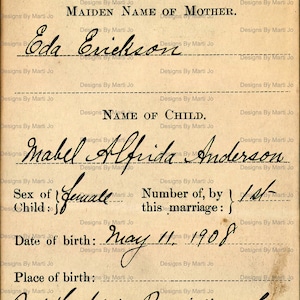 MAIDEN NAME OF MOTHER.
Eda Erickson
NAME OF CHILD.
Mabel Alfrida Anderson
Sex of Child: } female Number, by this marriage: } 1st
Date of birth: May 11. 1908
Place of birth:
Designs By Marti Jo